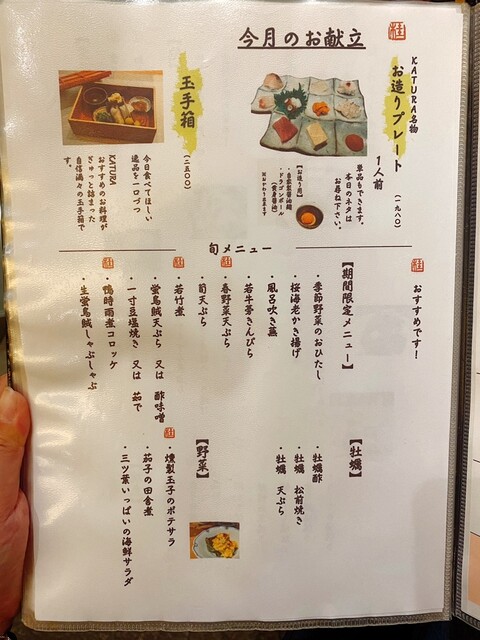 今月のお献立
桂
KATURA名物
お造りプレート
1人前
(一九八〇)
単品もできます。
本日のネタは
お尋ね下さい。
【お造り用】
・自家製醤油麹
・ドラゴンボール
(黄身醤油)
玉手箱
(二五〇〇)
今日食べてほしい
逸品を一口づつ
KATURA
おすすめのお料理が
ぎゅっと詰まった
自信満々の玉手箱で
す。
旬メニュー
桂
おすすめです!
【期間限定メニュー】
・季節野菜のおひたし
・桜海老かき揚げ
・風呂吹き蕪
・若牛蒡きんぴら
桂
・春野菜天ぷら
・筍天ぷら
桂
・若竹煮
・蛍烏賊天ぷら 又は 酢味噌
・一寸豆塩焼き 又は 茹で
桂
・鴨時雨煮コロッケ
・生蛍烏賊しゃぶしゃぶ
【牡蠣】
・牡蠣酢
・牡蠣 松前焼き
・牡蠣 天ぷら
【野菜】
桂
・燻製玉子のポテサラ
・茄子の田舎煮
・三ツ葉いっぱいの海鮮サラダ